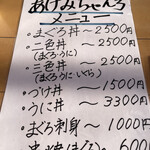 あけみちゃんち
メニュー
・まぐろ丼～2500円
・二色丼～2500円
(まぐろ・うに)
・三色丼～2500円
(まぐろ・うに・いくら)
・づけ丼～1500円
・うに丼～3300円
・まぐろ刺身～1000円